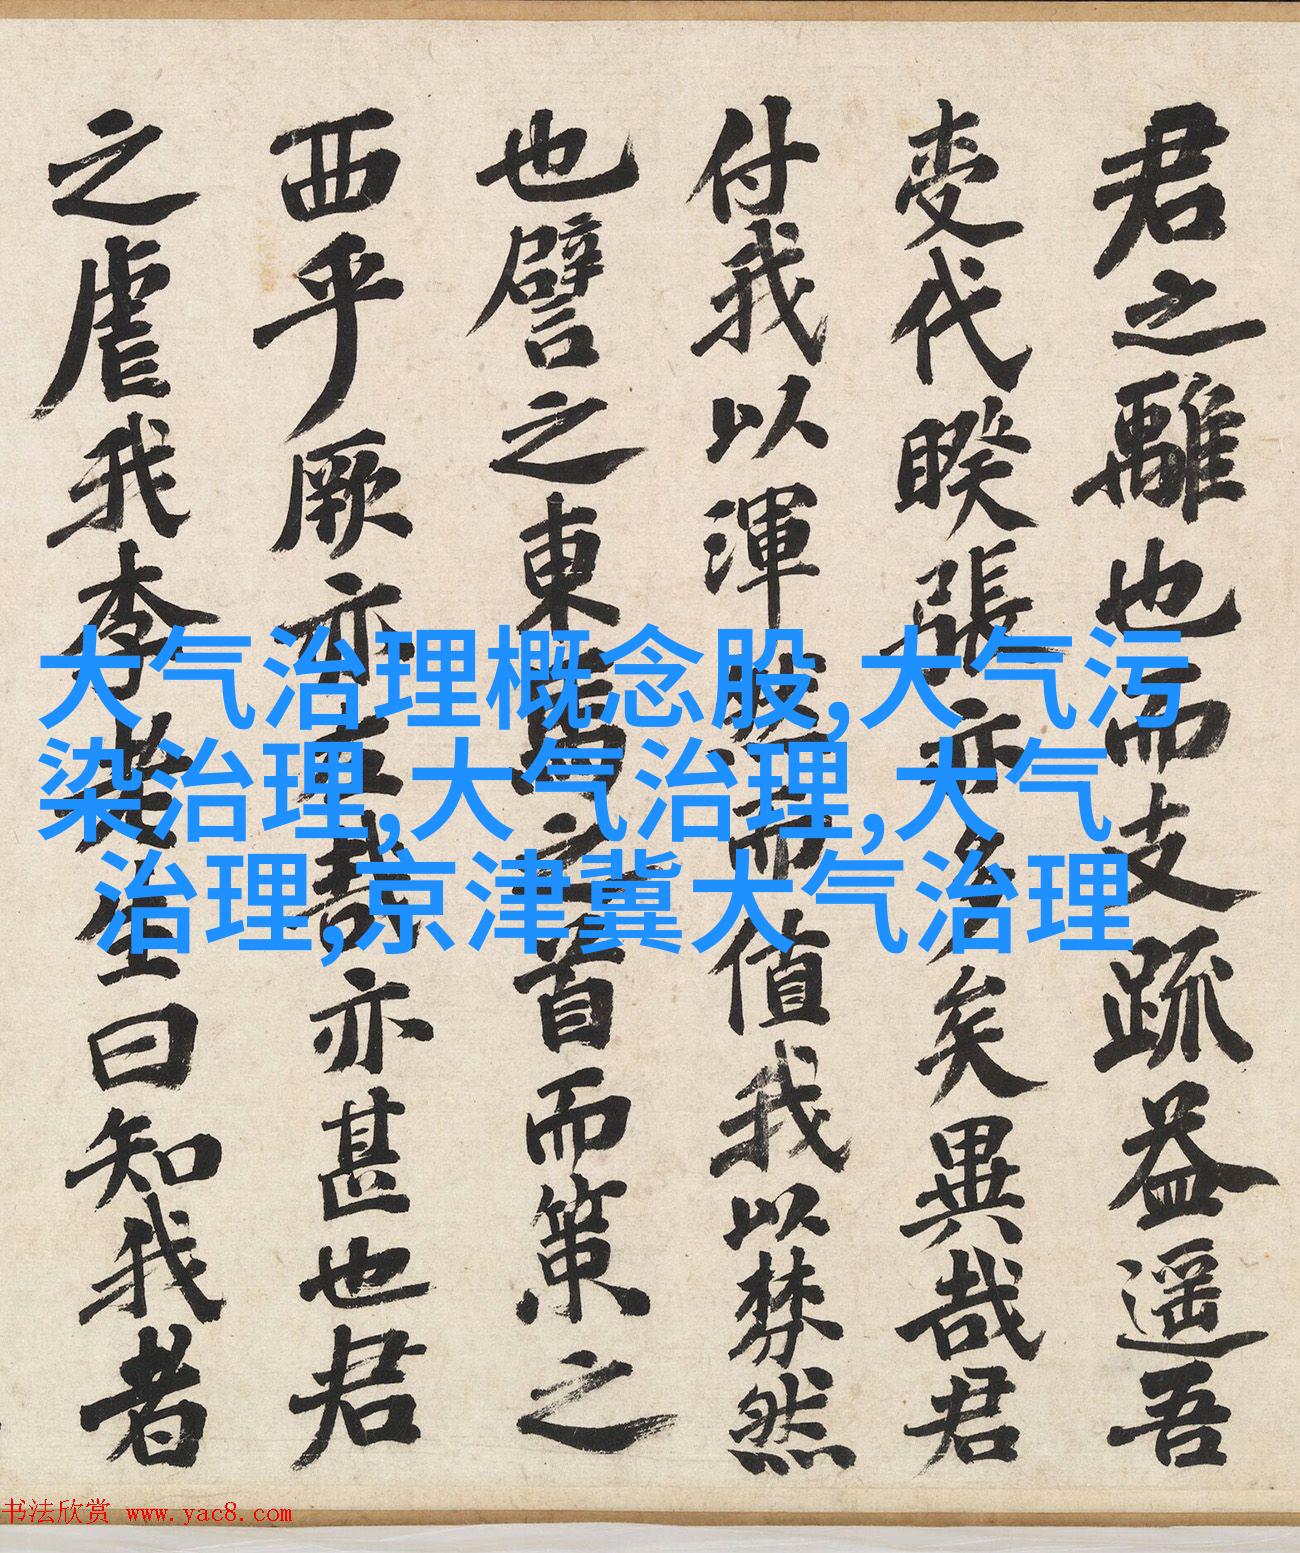 君之離也而支疏益遥吾
代睽張亦多矣異哉君
付我以渾然而值我以棼然
也譬之東馬之首而策之
西乎厥亦左哉亦甚也君
之虐我李老生曰知我者
大气治理概念股,大气污
染治理,大气治理,大气
治理,京津冀大气治理
书法欣赏 www.yac8.com